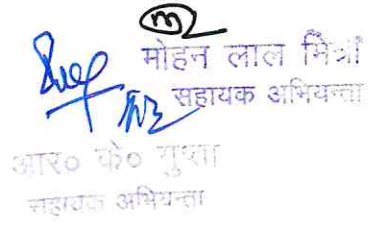 मोहन लाल मिस्त्री
सहायक अभियन्ता
आर० के० गुप्ता
सहायक अभियन्ता